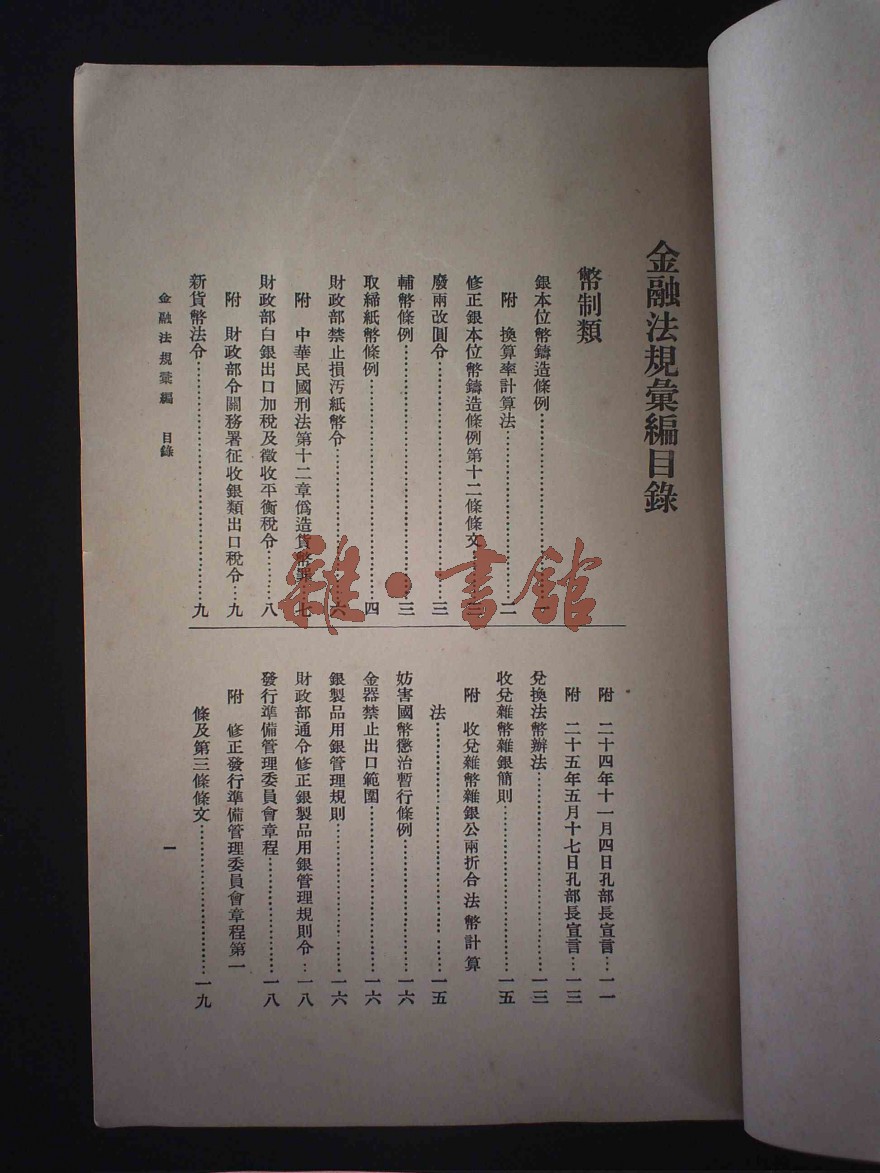 金融法規彙編目錄
幣制類
銀本位幣鑄造條例……一
附 換算率計算法……二
修正銀本位幣鑄造條例第十二條條文……三
廢兩改圓令……三
輔幣條例……三
取締紙幣條例……四
財政部禁止損汚紙幣令……六
附 中華民國刑法第十二章僞造貨幣罪……七
財政部白銀出口加稅及徵收平衡稅令……八
附 財政部令關務署征收銀類出口稅令……九
新貨幣法令……九
附 二十四年十一月四日孔部長宣言……一一
附 二十五年五月十七日孔部長宣言……一三
兌換法幣辦法……一三
收兌雜幣雜銀簡則……一五
附 收兌雜幣雜銀公兩折合法幣計算
法……一五
妨害國幣懲治暫行條例……一六
金器禁止出口範圍……一六
銀製品用銀管理規則……一六
財政部通令修正銀製品用銀管理規則令……一八
發行準備管理委員會章程……一八
附 修正發行準備管理委員會章程第一
條及第三條條文……一九
金融法規彙編 目錄
一
雜·書館